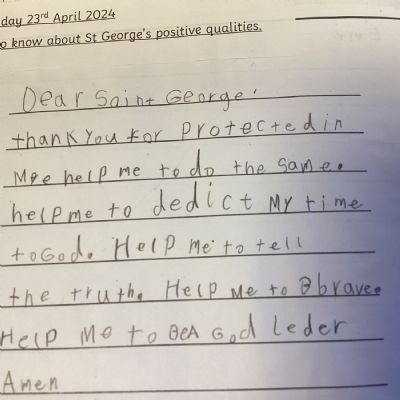 day 23rd April 2024
o know about St George's positive qualities.
Dear Saint George'
thank you for protectedin
Mye help me to do the same.
help me to dedict My time
to God. Help me to tell
the truth. Help Me to Bbrave.
Help Me to BeA God leder
Amen